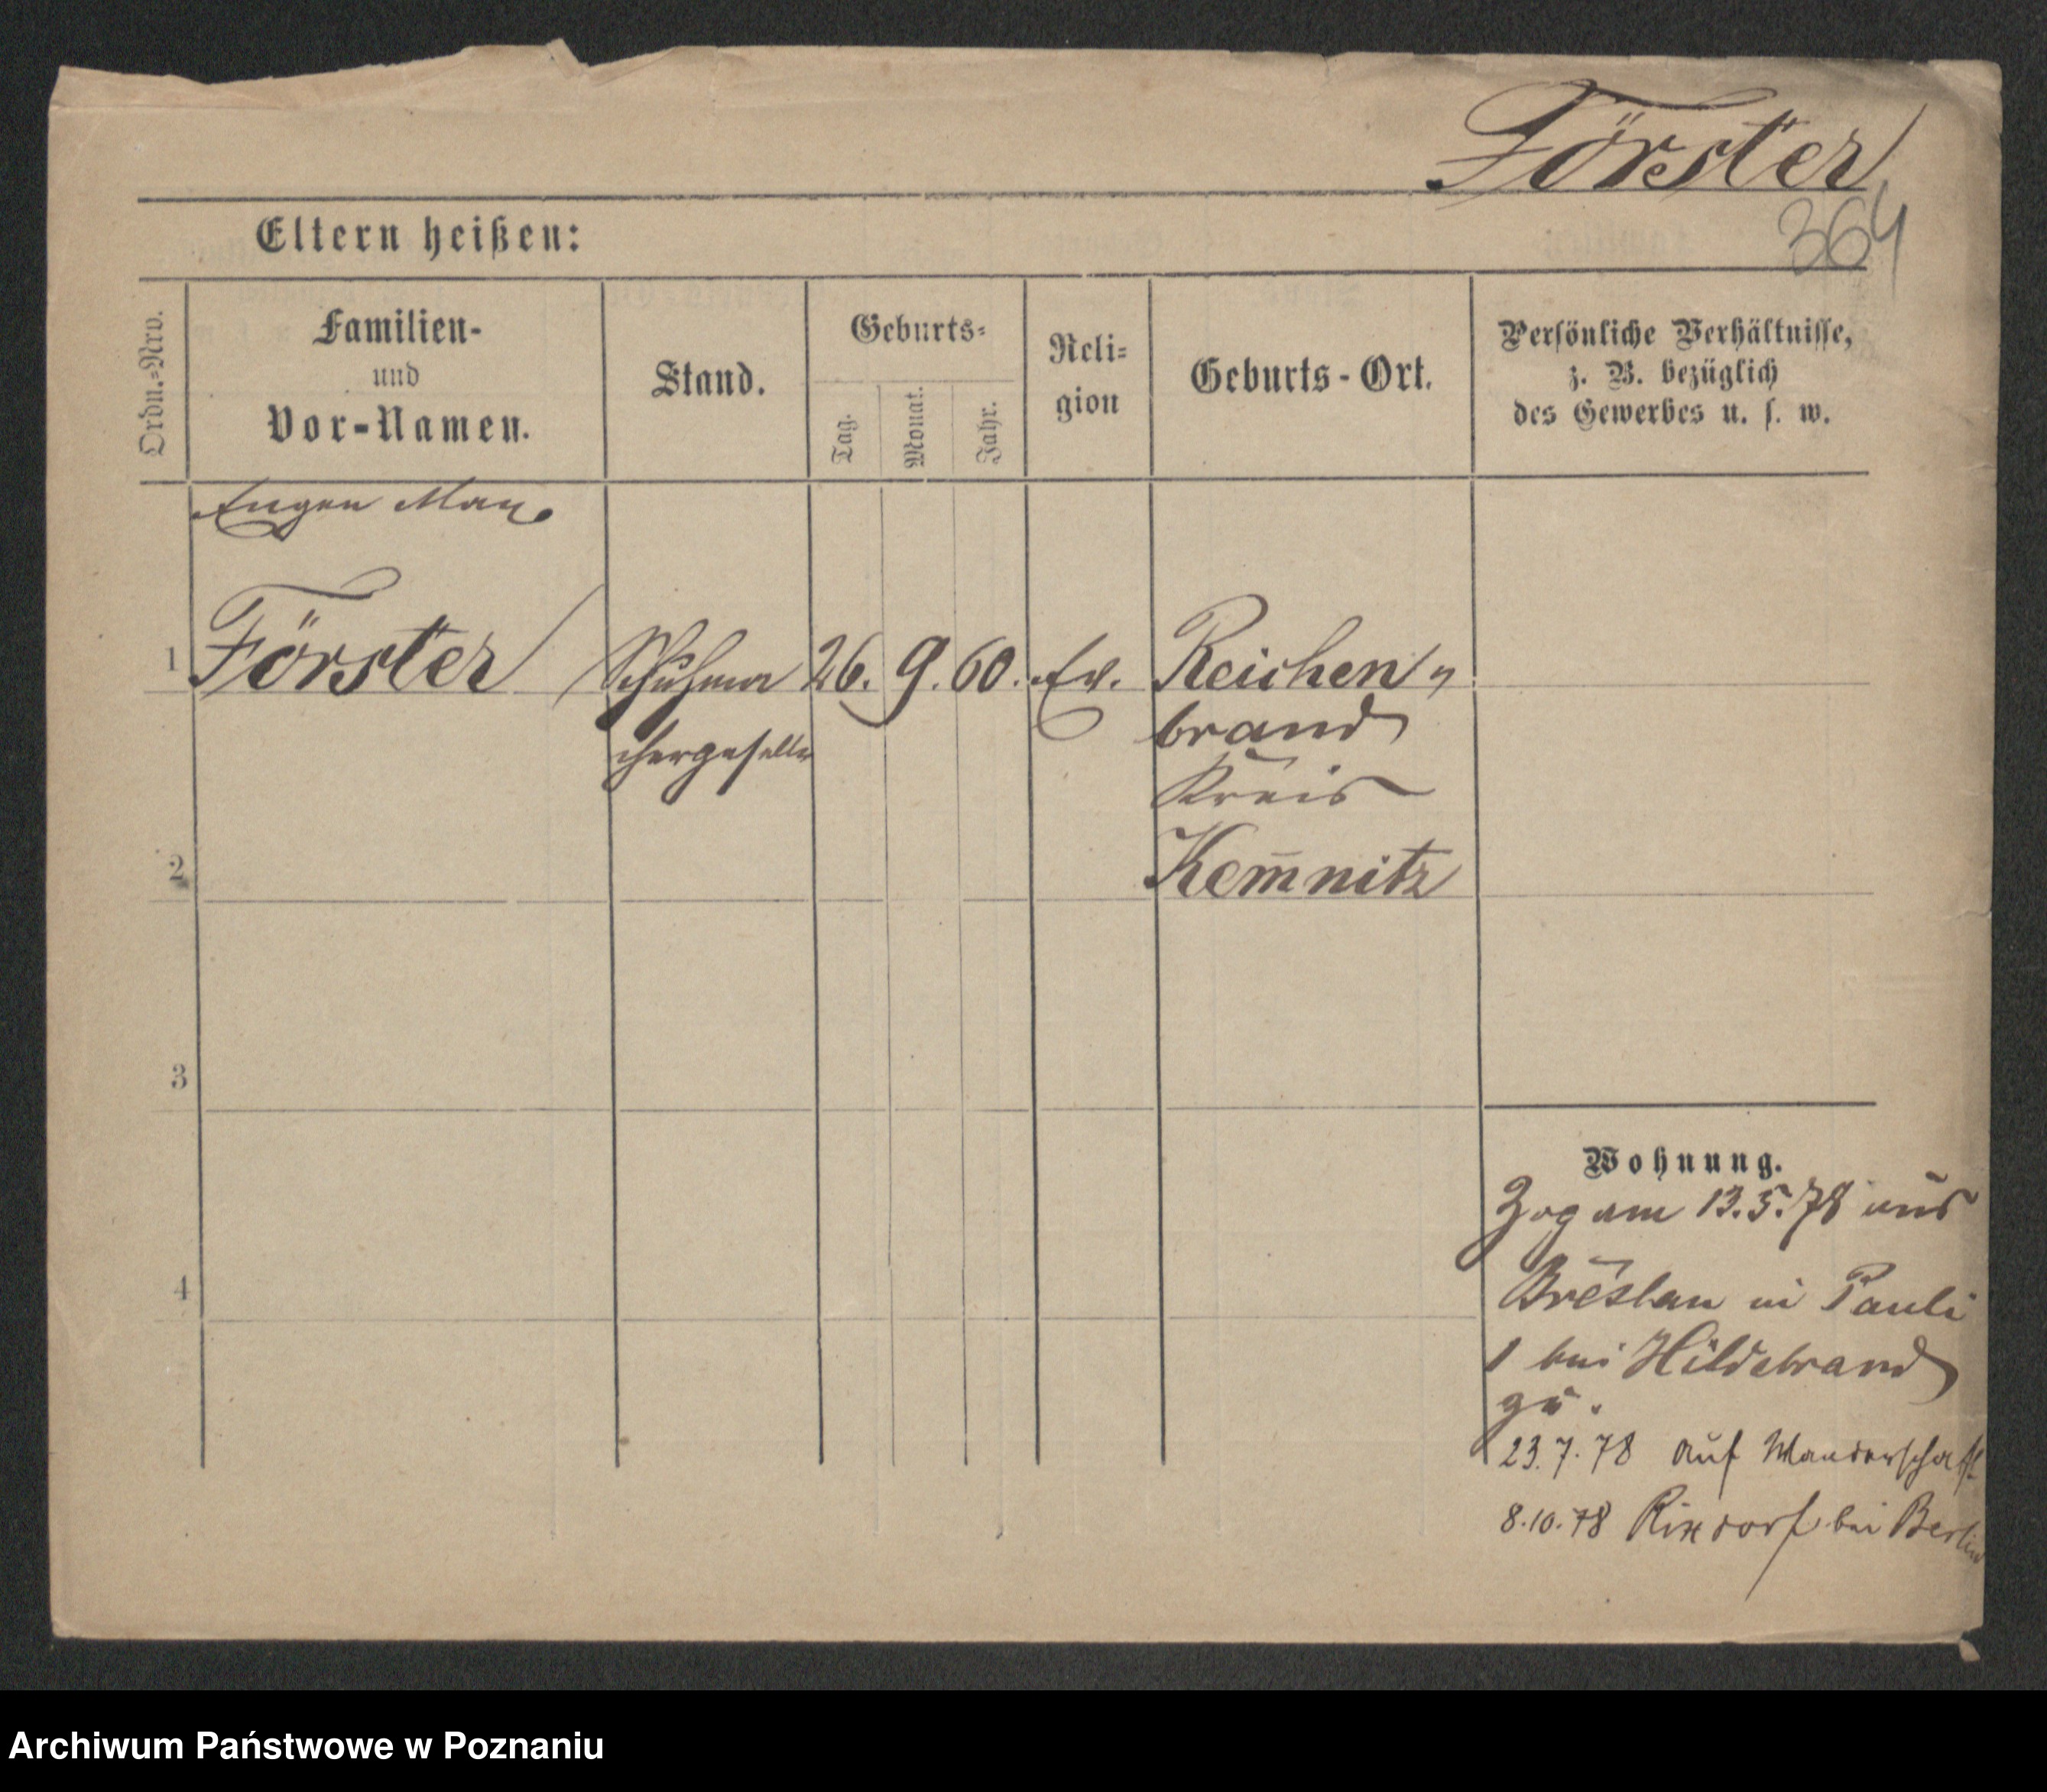 Förster
364
Eltern heißen:
Ordn.-Nro.
Familien-
und
Vor-Namen.
Stand.
Geburts-
Tag.
Monat.
Jahr.
Reli-
gion
Geburts-Ort.
Persönliche Verhältnisse,
z. B. bezüglich
des Gewerbes u. s. w.
Eugen Max
1 Förster Schuhma 26. 9. 60. Ev. Reichen
chergeselle brand
Kreis
Kem̄nitz
2
3
4
Wohnung.
Zog am 13.5.78 aus
Breslau in Pauli
1 bei Hildebrand
zu.
23.7.78 auf Wanderschaft
8.10.78 Rixdorf bei Berlin
Archiwum Państwowe w Poznaniu